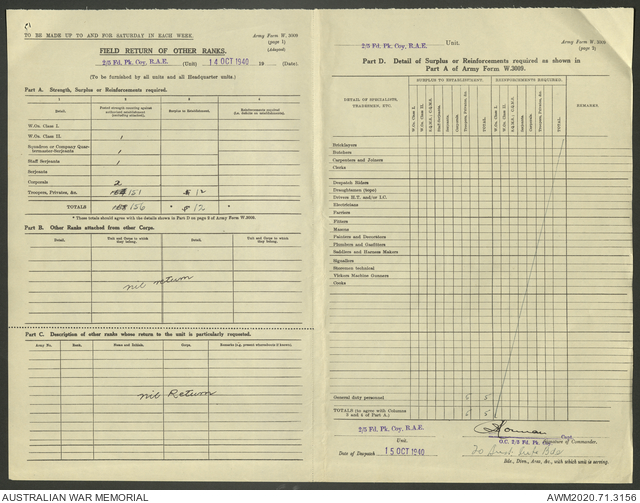 TO BE MADE UP TO AND FOR SATURDAY IN EACH WEEK.
Army Form W. 3009
(page 1)
(Adapted)
FIELD RETURN OF OTHER RANKS.
2/5 Fd. Pk. Coy, R.A.E. (Unit) 14 OCT 1940 19 (Date).
(To be furnished by all units and all Headquarter units.)
Part A. Strength, Surplus or Reinforcements required.
1 2 3 4
Detail. Posted strength counting against authorized establishment (excluding attached). Surplus to Establishment. Reinforcements required (i.e. deficits on establishment).
W.Os. Class I.
W.Os. Class II. 1
Squadron or Company Quartermaster-Serjeants 1
Staff Serjeants 1
Serjeants
Corporals 2
Troopers, Privates, &c. 151 12
TOTALS 156 * 12 *
* These totals should agree with the details shown in Part D on page 2 of Army Form W.3009.
Part B. Other Ranks attached from other Corps.
Detail. Unit and Corps to which they belong. Detail. Unit and Corps to which they belong.
nil return
Part C. Description of other ranks whose return to the unit is particularly requested.
Army No. Rank. Name and Initials. Corps. Remarks (e.g. present whereabouts if known).
nil Return
2/5 Fd. Pk. Coy, R.A.E. Unit.
Army Form W. 3009
(page 2)
Part D. Detail of Surplus or Reinforcements required as shown in
Part A of Army Form W.3009.
DETAIL OF SPECIALISTS, TRADESMEN, ETC.
SURPLUS TO ESTABLISHMENT.
REINFORCEMENTS REQUIRED.
REMARKS.
W.Os. Class I.
W.Os. Class II.
Staff-Serjeants
Serjeants
Corporals
Troopers, Privates, &c.
TOTAL
W.Os. Class I.
W.Os. Class II.
Serjeants
Corporals
Troopers, Privates, &c.
TOTAL
Bricklayers
Butchers
Carpenters and Joiners
Clerks
Despatch Riders
Draughtsmen (topo)
Drivers H.T. and/or I.C.
Electricians
Farriers
Fitters
Masons
Painters and Decorators
Plumbers and Gasfitters
Saddlers and Harness Makers
Signallers
Storemen technical
Vickers Machine Gunners
Cooks
General duty personnel 5 5
TOTALS (to agree with Columns 3 and 4 of Part A.) 5 5
2/5 Fd. Pk. Coy, R.A.E.
Unit.
Capt.
O.C. 2/5 Fd. Pk. Signature of Commander.
Date of Despatch 15 OCT 1940
Bde., Divn., Area, &c., with which unit is serving.
AUSTRALIAN WAR MEMORIAL
AWM2020.71.3156